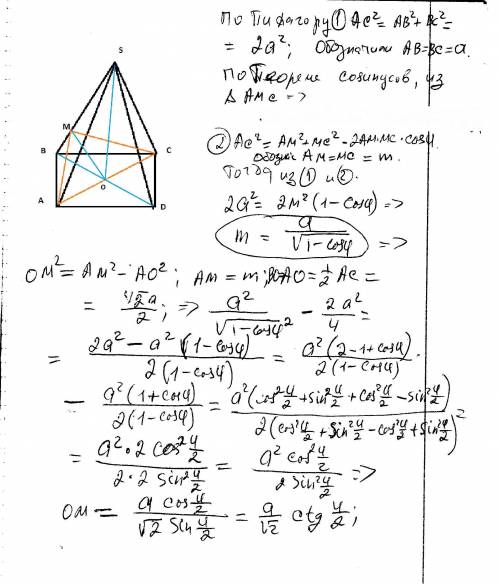 S
M
B
C
O
A
D
По Пифагору ① AC² = AB² + BC² =
= 2a²; Обозначим AB=BC=a.
По Теореме косинусов, из
Δ AMC =>
② AC² = AM² + MC² - 2AM·MC·cosφ.
AM=MC = m.
Тогда из ① и ②.
2a² = 2m² (1-cosφ) =>
m = a/√(1-cosφ) =>
OM² = AM² - AO²; AM = m; AO = ½ AC =
= √2a/2; => a²/√(1-cosφ)² - 2a²/4 =
= (2a² - a² (1-cosφ))/(2(1-cosφ)) = a²(2-1+cosφ)/(2(1-cosφ)).
- a²(1+cosφ)/(2(1-cosφ)) = a²(cos²φ/2 + sin²φ/2 + cos²φ/2 - sin²φ/2)/(2(cos²φ/2 + sin²φ/2 - cos²φ/2 + sin²φ/2)) =
= a²·2cos²φ/2 / (2·2 sin²φ/2) = a² cos²φ/2 / (2 sin²φ/2) =>
OM = a cos φ/2 / (√2 sin φ/2) = a/√2 ctg φ/2;